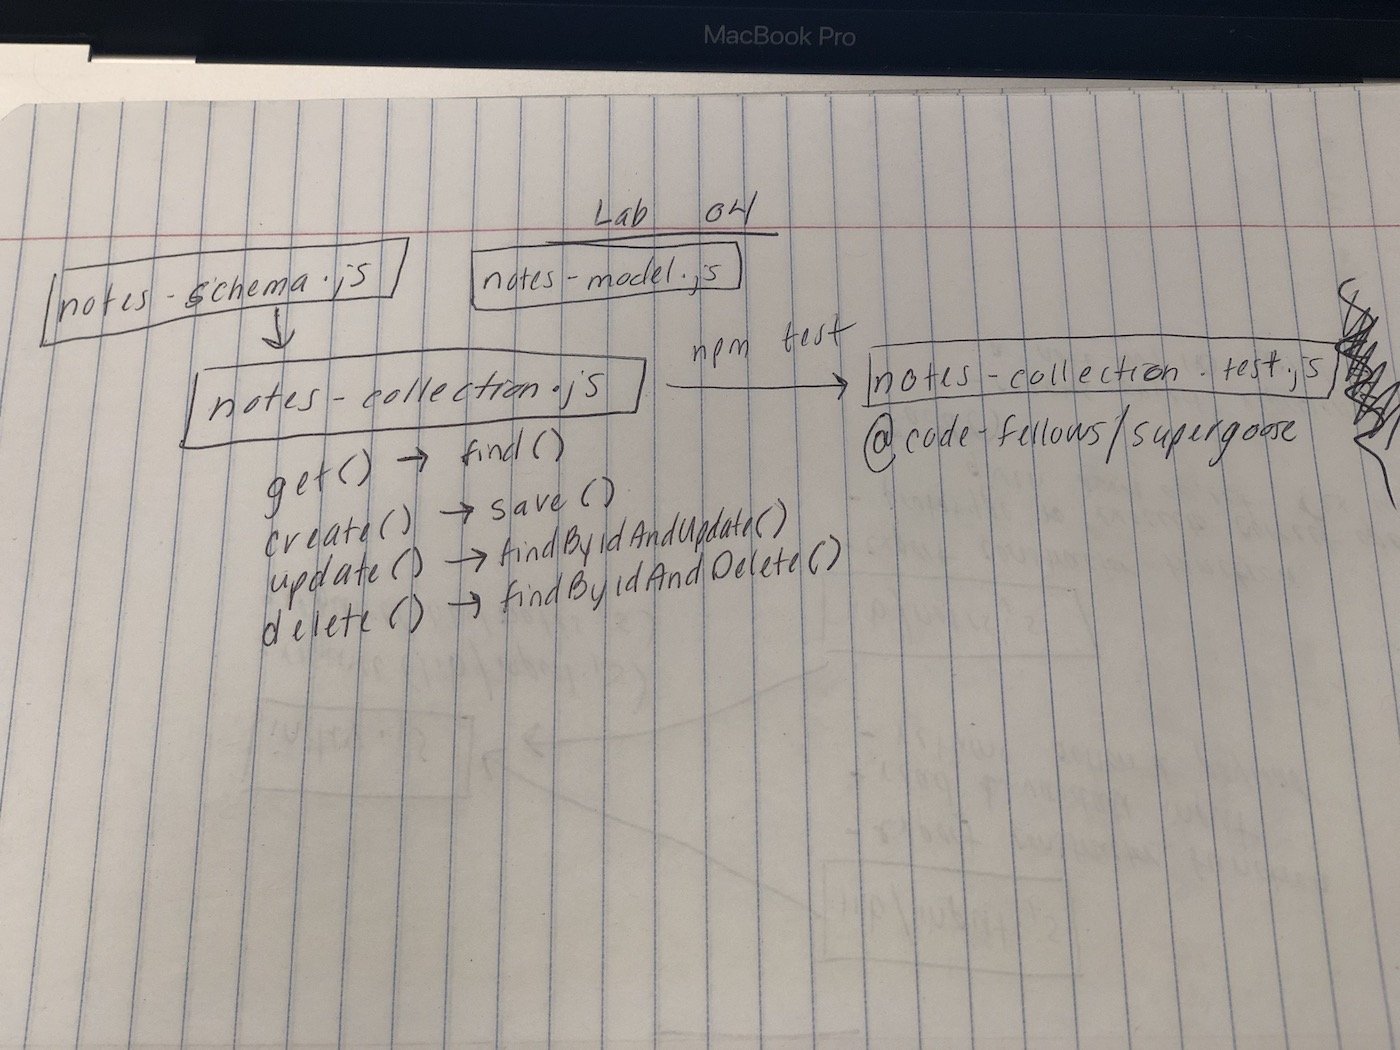 MacBook Pro
Lab 04
notes-schema.js
notes-model.js
notes-collection.js
npm test
notes-collection.test.js
@code-fellows/supergoose
get() → find()
create() → save()
update() → findByIdAndUpdate()
delete() → findByIdAndDelete()